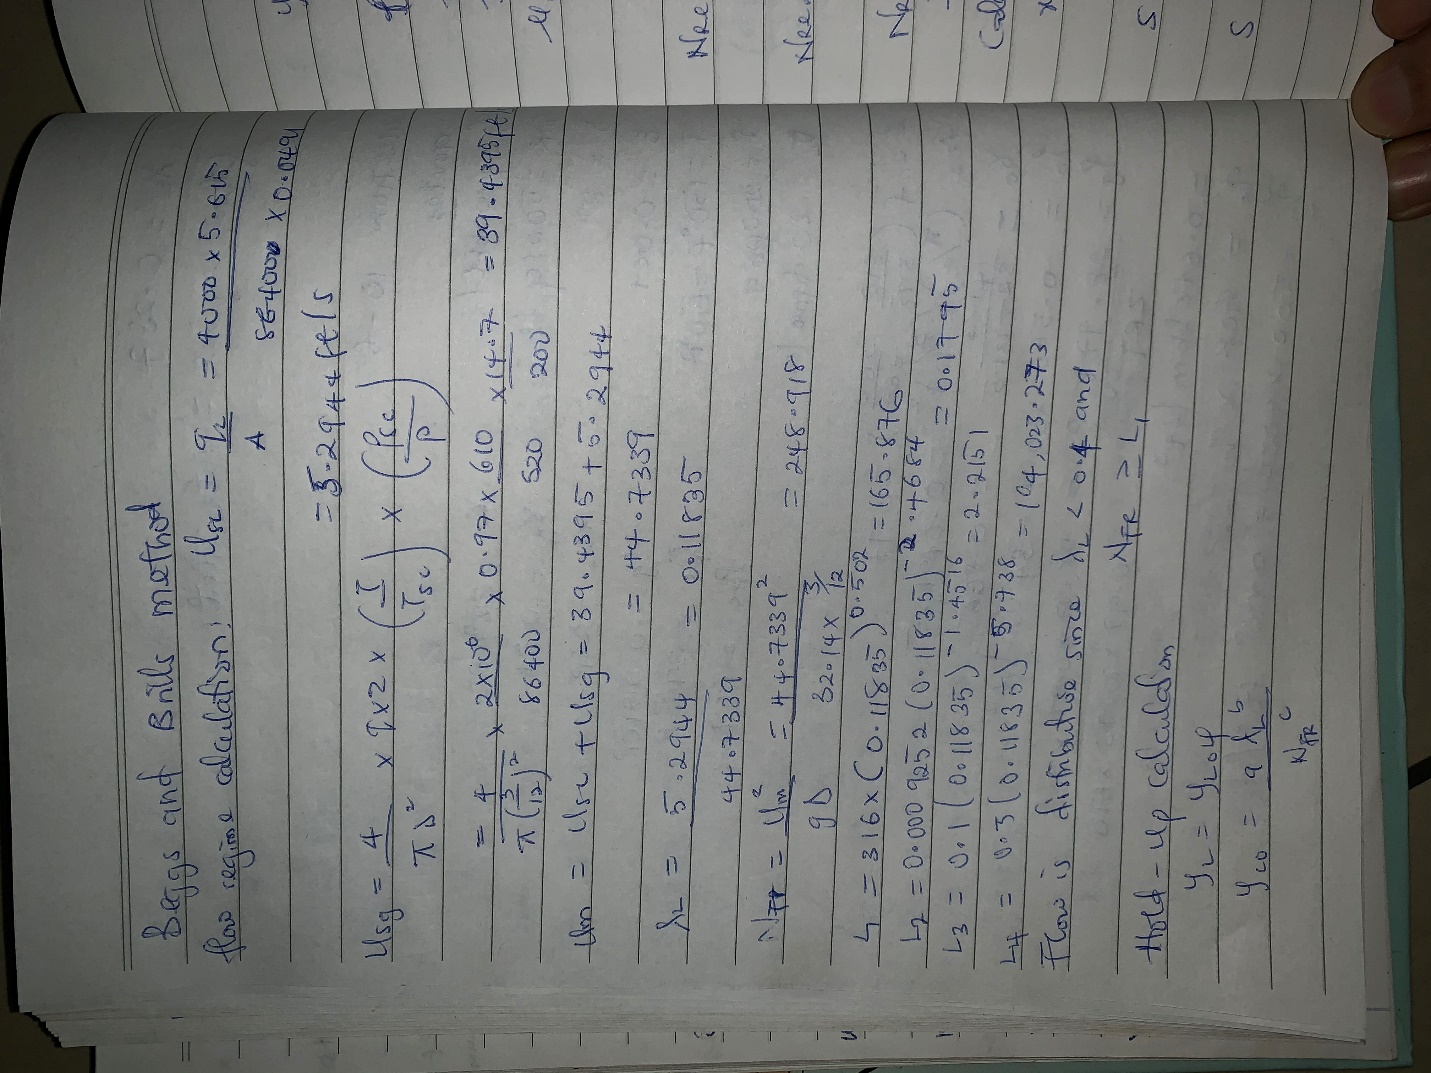 Beggs and Brills method
flow regime calculation; Usl = qL/A = 4000 x 5.615 / 86400 x 0.0491
= 5.2944 ft/s
Usg = 4/πD² x q x 2 x (T/Tsc) x (Psc/P)
= 4/π(3/12)² x 2x10⁶/86400 x 0.97 x 610/520 x 14.7/200 = 39.4395 ft
Um = Usl + Usg = 39.4395 + 5.2944
= 44.7339
λL = 5.2944/44.7339 = 0.11835
NFr = Um²/gD = 44.7339²/32.14 x 3/12 = 248.918
L1 = 316 x (0.11835)^0.302 = 165.876
L2 = 0.0009252 (0.11835)^-2.4684 = 0.1795
L3 = 0.1 (0.11835)^-1.4516 = 2.2151
L4 = 0.5 (0.11835)^-6.738 = 104,023.273
Flow is distributive since λL < 0.4 and
NFR ≥ L1
Hold-up calculation
yL = yLoψ
yLo = a λL^b / NFR^c
Nre
Nre
S
S